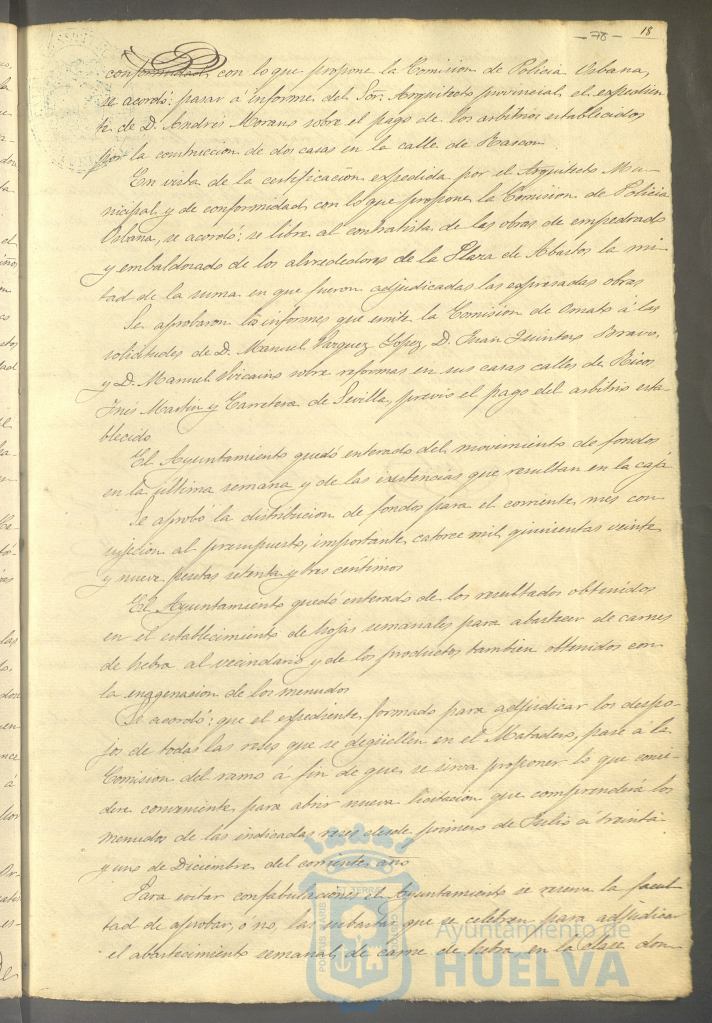 - 78 -
18
conformidad, con lo que propone la Comision de Policia Urbana,
se acordó: pasar á informe del Sor. Arquitecto provincial, el expedien-
te de D. Andrés Moraus sobre el pago de los arbitrios establecidos
por la construccion de dos casas en la calle de Rascon.
En vista de la certificacion expedida por el Arquitecto Mu-
nicipal y de conformidad con lo que propone la Comision de Policia
Urbana, se acordó: se libre al contratista de las obras de empedrado
y embaldosado de los alrrededores de la Plaza de Abastos la mi-
tad de la suma en que fueron adjudicadas las expresadas obras
Se aprobaron los informes que emite la Comision de Ornato á las
solicitudes de D. Manuel Vazquez Lopez, D. Juan Quintero Bravo,
y D. Manuel Vizcaino sobre reformas en sus casas calles de Ricos
Inés Martin y Carretera de Sevilla, previo el pago del arbitrio esta-
blecido
El Ayuntamiento quedó enterado del movimiento de fondos
en la última semana y de las existencias que resultan en la caja
Se aprobó la distribucion de fondos para el corriente mes con
sujecion al presupuesto, importante, catorce mil quinientas veinte
y nueve pesetas setenta y tres centimos
El Ayuntamiento quedó enterado de los resultados obtenidos
en el establecimiento de hojas semanales para abastecer de carnes
de hebra al vecindario y de los productos tambien obtenidos con
la enagenacion de los menudos
Se acordó: que el expediente formado para adjudicar los despo-
jos de todas las reses que se degüellen en el Matadero, pase á la
Comision del ramo á fin de que se sirva proponer lo que consi-
dere conveniente para abrir nueva licitacion que comprenderá los
menudos de las indicadas reses desde primero de Julio á treinta
y uno de Diciembre del corriente año
Para evitar confabulaciones el Ayuntamiento se reserva la facul-
tad de aprobar, ó no, las subastas que se celebren para adjudicar
el abastecimiento semanal, de carne de hebra, en la clase don-
Ayuntamiento de
HUELVA